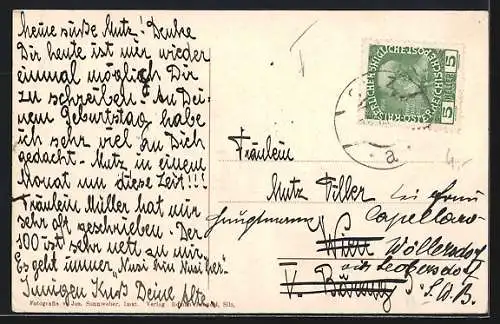 Meine süße Mutz! Denke
Dir heute ist mir wieder
einmal möglich Dir
zu schreiben! An Dei-
nem Geburtstag habe
ich sehr viel an Dich
gedacht. Mutz in einem
Monat um diese Zeit!!!
Fräulein Müller hat mir
sehr oft geschrieben. Der
100 ist sehr nett zu mir.
Es geht immer „Nusi hin Nusi her"
Innigen Kuß Deine Alte
Fotografie v. Jos. Sonnweber, Inst. Verlag
5 5
a
4.-
Fräulein
Mutz Piller bei Frau
Hauptmann Capellaro
Wien Wöllersdorf
V.
S.W.B.